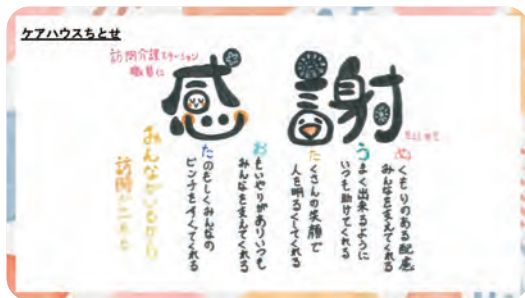 ケアハウスちとせ
訪問介護ステーション
職員に
感謝
ぬくもりのある配慮
みんなを支えてくれる
うまく出来るように
いつも助けてくれる
たくさんの笑顔で
人を明るくしてくれる
おもいやりがありいつも
みんなを支えてくれる
たのもしくみんなの
ピンチをすくってくれる
みんながいるから
訪問が